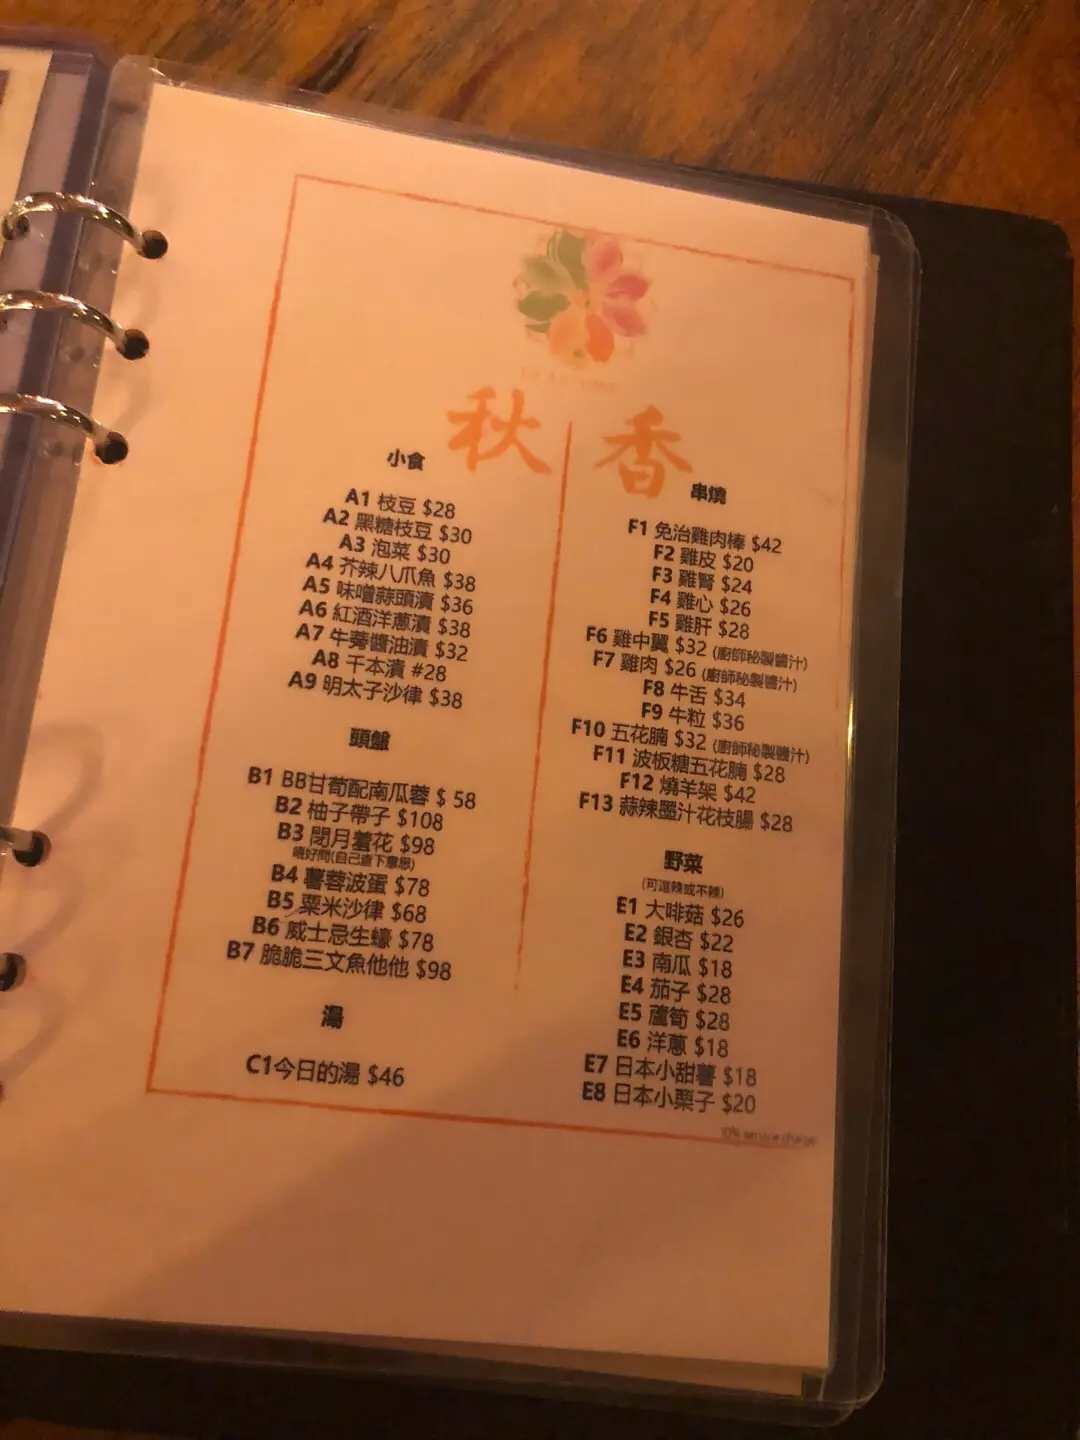 秋香
小食
A1 枝豆 $28
A2 黑糖枝豆 $30
A3 泡菜 $30
A4 芥辣八爪魚 $38
A5 味噌蒜頭漬 $36
A6 紅酒洋蔥漬 $38
A7 牛蒡醬油漬 $32
A8 千本漬 #28
A9 明太子沙律 $38
頭盤
B1 BB甘荀配南瓜蓉 $ 58
B2 柚子帶子 $108
B3 閉月羞花 $98
唔好問(自己查下意思)
B4 薯蓉波蛋 $78
B5 粟米沙律 $68
B6 威士忌生蠔 $78
B7 脆脆三文魚他他 $98
湯
C1今日的湯 $46
串燒
F1 免治雞肉棒 $42
F2 雞皮 $20
F3 雞腎 $24
F4 雞心 $26
F5 雞肝 $28
F6 雞中翼 $32 (廚師秘製醬汁)
F7 雞肉 $26 (廚師秘製醬汁)
F8 牛舌 $34
F9 牛粒 $36
F10 五花腩 $32 (廚師秘製醬汁)
F11 波板糖五花腩 $28
F12 燒羊架 $42
F13 蒜辣墨汁花枝腸 $28
野菜
(可選辣或不辣)
E1 大啡菇 $26
E2 銀杏 $22
E3 南瓜 $18
E4 茄子 $28
E5 蘆筍 $28
E6 洋蔥 $18
E7 日本小甜薯 $18
E8 日本小栗子 $20
10% service charge